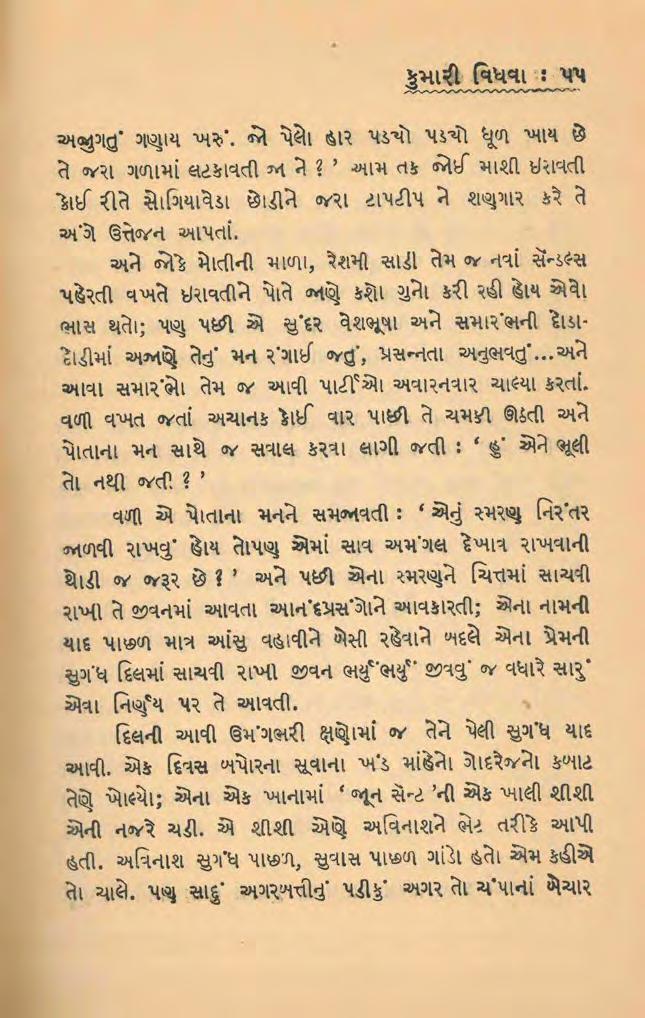 કુમારી વિધવા : ૫૫
અજુગતું ગણાય ખરું. જો પેલો હાર પડ્યો પડ્યો ધૂળ ખાય છે
તે જરા ગળામાં લટકાવતી જા ને ? ’ આમ તક જોઈ માશી ઇરાવતી
કોઈ રીતે સોગિયાવેડા છોડીને જરા ટાપટીપ ને શણગાર કરે તે
અંગે ઉત્તેજન આપતાં.
અને જોકે મોતીની માળા, રેશમી સાડી તેમ જ નવાં સૅન્ડલ્સ
પહેરતી વખતે ઇરાવતીને પોતે જાણે કશો ગુનો કરી રહી હોય એવો
ભાસ થતો; પણ પછી એ સુંદર વેશભૂષા અને સમારંભની દોડા-
દોડીમાં અજાણે તેનું મન રંગાઈ જતું, પ્રસન્નતા અનુભવતું...અને
આવા સમારંભો તેમ જ આવી પાર્ટીઓ અવારનવાર ચાલ્યા કરતાં.
વળી વખત જતાં અચાનક કોઈ વાર પાછી તે ચમકી ઊઠતી અને
પોતાના મન સાથે જ સવાલ કરવા લાગી જતી : ‘ હું એને ભૂલી
તો નથી જતી ? ’
વળી એ પોતાના મનને સમજાવતી : ‘ એનું સ્મરણ નિરંતર
જાળવી રાખવું હોય તોપણ એમાં સાવ અમંગલ દેખાવ રાખવાની
થોડી જ જરૂર છે ? ’ અને પછી એના સ્મરણને ચિત્તમાં સાચવી
રાખી તે જીવનમાં આવતા આનંદપ્રસંગોને આવકારતી; એના નામની
યાદ પાછળ માત્ર આંસુ વહાવીને બેસી રહેવાને બદલે એના પ્રેમની
સુગંધ દિલમાં સાચવી રાખી જીવન ભર્યુંભર્યું જીવવું જ વધારે સારું
એવા નિર્ણય પર તે આવતી.
દિલની આવી ઉમંગભરી ક્ષણોમાં જ તેને પેલી સુગંધ યાદ
આવી. એક દિવસ બપોરના સૂવાના ખંડ માંહેનો ગોદરેજનો કબાટ
તેણે ખોલ્યો; એના એક ખાનામાં ‘ જૂન સૅન્ટ ’ની એક ખાલી શીશી
એની નજરે ચડી. એ શીશી એણે અવિનાશને ભેટ તરીકે આપી
હતી. અવિનાશ સુગંધ પાછળ, સુવાસ પાછળ ગાંડો હતો એમ કહીએ
તો ચાલે. પણ સાદું અગરબત્તીનું પડીકું અગર તો ચંપાનાં બેચાર